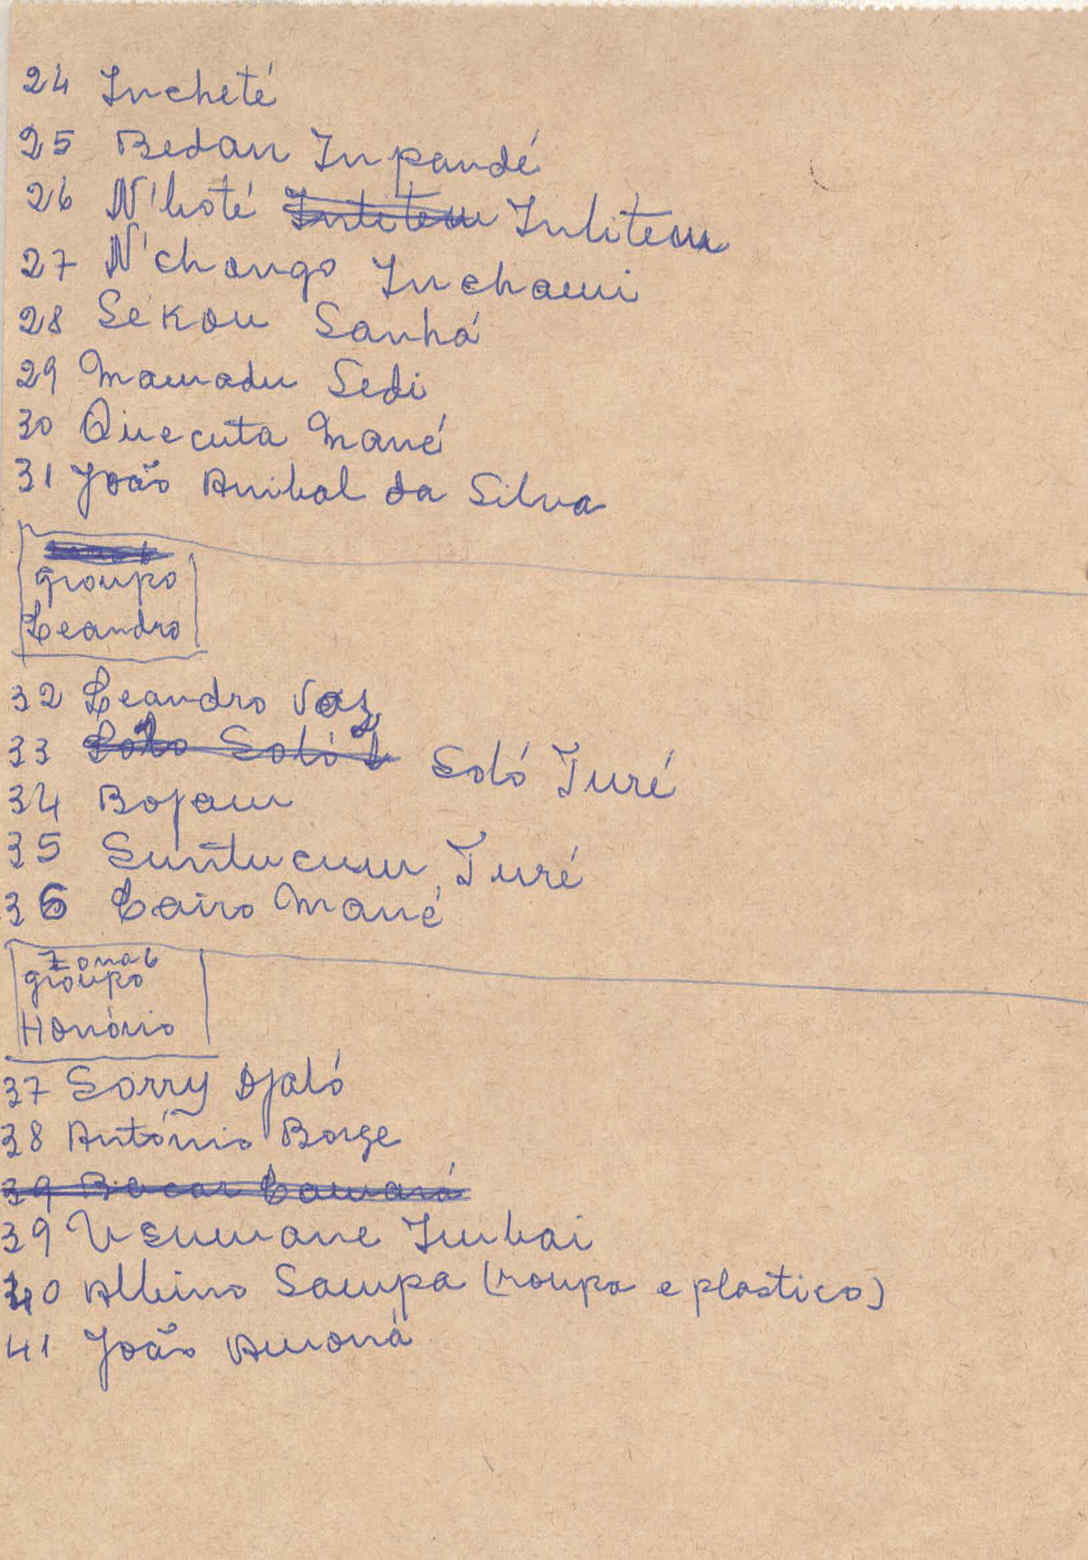 24 Incheté
25 Bedan Inpandé
26 N'boté Intitem Inlitem
27 N'chongo Inchami
28 Sékou Sanhá
29 Mamadu Sedi
30 Quecuta Mané
31 João Anibal da Silva
groupo
Leandro
32 Leandro Vaz
33 Soló Turé
34 Bojam
35 Suntucum Turé
36 Cairo Mané
Zona 6
groupo
Honório
37 Sorry Djaló
38 António Borge
39 Bacar Camará
39 Usumane Imbai
40 Albino Sampa (roupa e plastico)
41 João Amoná